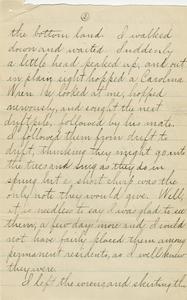 3
the bottom land. I walked
down and waited. Suddenly
a little head peaked up, and out
in plain sight hopped a Carolina
Wren. He looked at me, hopped
nervously, and sought the next
driftpile, followed by his mate.
I followed them from drift to
drift, thinking they might go into
the trees and sing as they do in
spring but a short chirp was the
only note they would give. Well,
it is needless to say I was glad to see
them, a few days more and I could
not have fairly placed them among
permanent residents, as I well knew
they were.
I left the wrens and skirting the